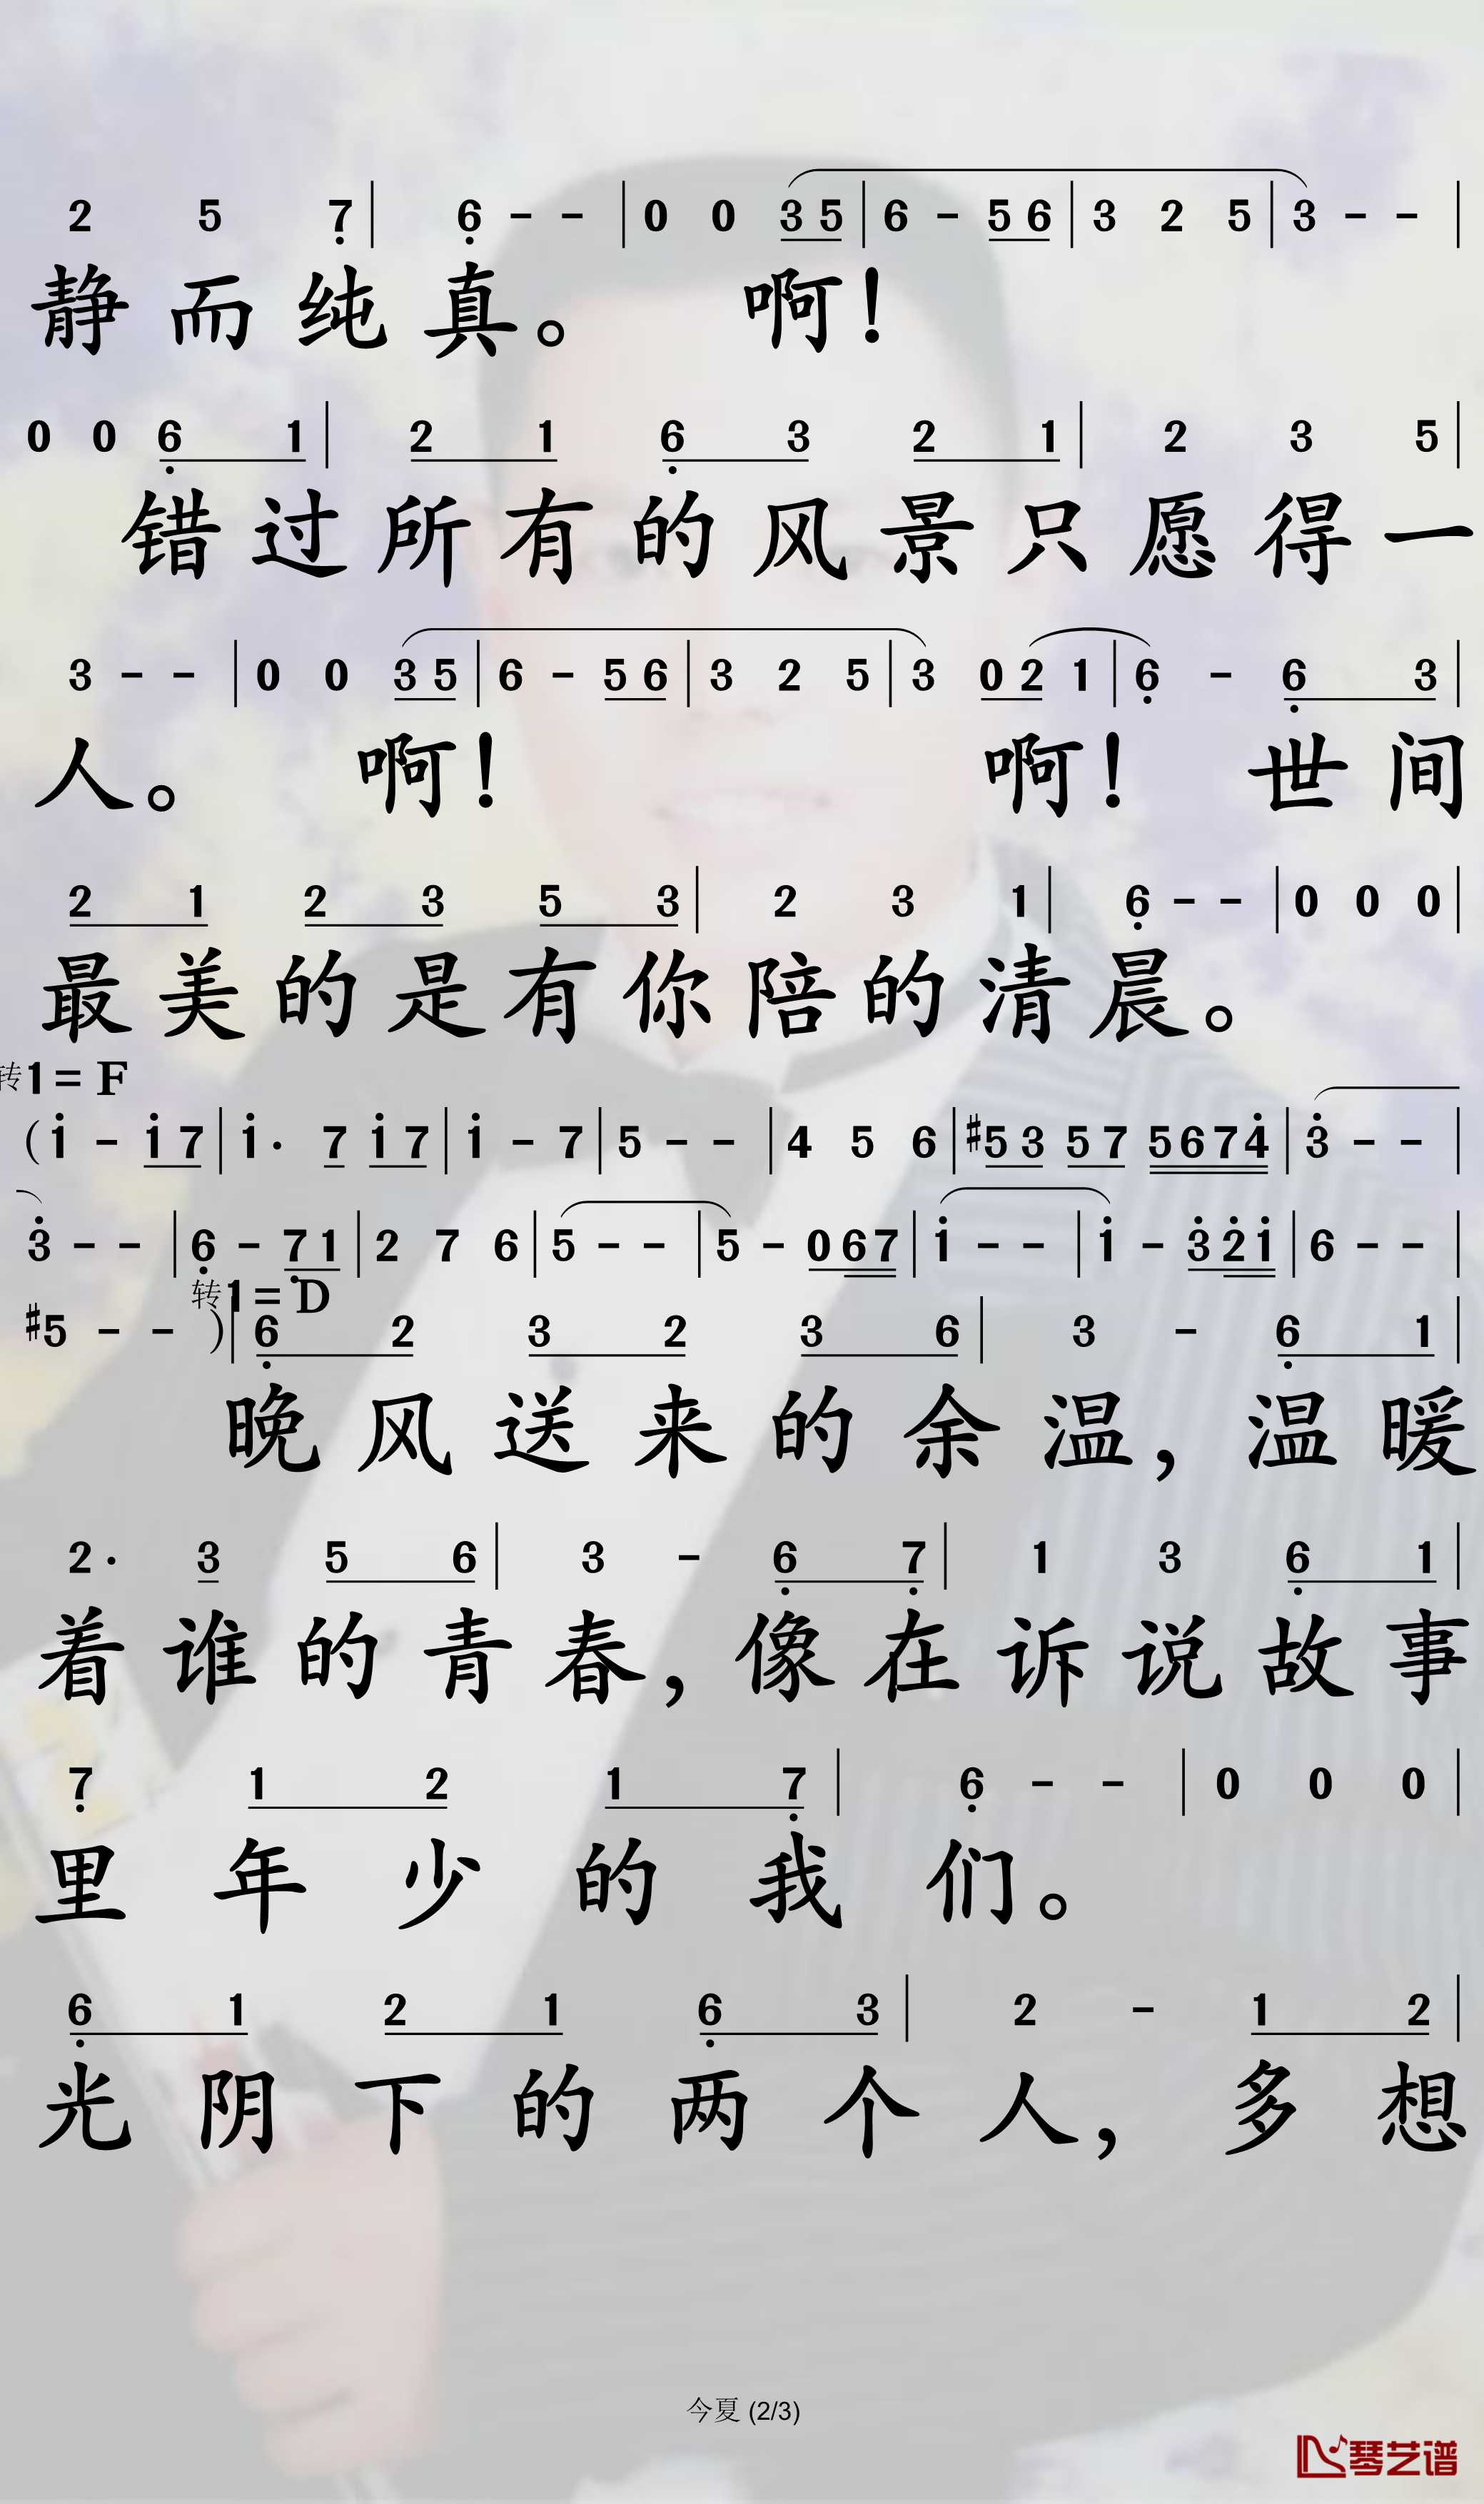 2 5 7̣ | 6̣ - - | 0 0 3 5 | 6 - 5 6 | 3 2 5 | 3 - - |
静而纯真。 啊!
0 0 6̣ 1 | 2 1 6̣ 3 2 1 | 2 3 5 |
错过所有的风景只愿得一
3 - - | 0 0 3 5 | 6 - 5 6 | 3 2 5 | 3 0 2 1 | 6̣ - 6̣ 3 |
人。 啊! 啊! 世间
2 1 2 3 5 3 | 2 3 1 | 6̣ - - | 0 0 0 |
最美的是有你陪的清晨。
转1= F
(1̇ - 1̇ 7 | 1̇· 7 1̇ 7 | 1̇ - 7 | 5 - - | 4 5 6 | #5 3 5 7 5 6 7 4̇ | 3̇ - - |
3̇ - - | 6̣ - 7̣ 1 | 2 7 6 | 5 - - | 5 - 0 6 7 | 1̇ - - | 1̇ - 3̇ 2̇ 1̇ | 6 - - |
转1= D
#5 - - ) | 6̣ 2 3 2 3 6 | 3 - 6̣ 1 |
晚风送来的余温,温暖
2· 3 5 6 | 3 - 6̣ 7̣ | 1 3 6̣ 1 |
着谁的青春,像在诉说故事
7̣ 1 2 1 7̣ | 6̣ - - | 0 0 0 |
里年少的我们。
6̣ 1 2 1 6̣ 3 | 2 - 1 2 |
光阴下的两个人,多想
今夏 (2/3)
琴艺谱